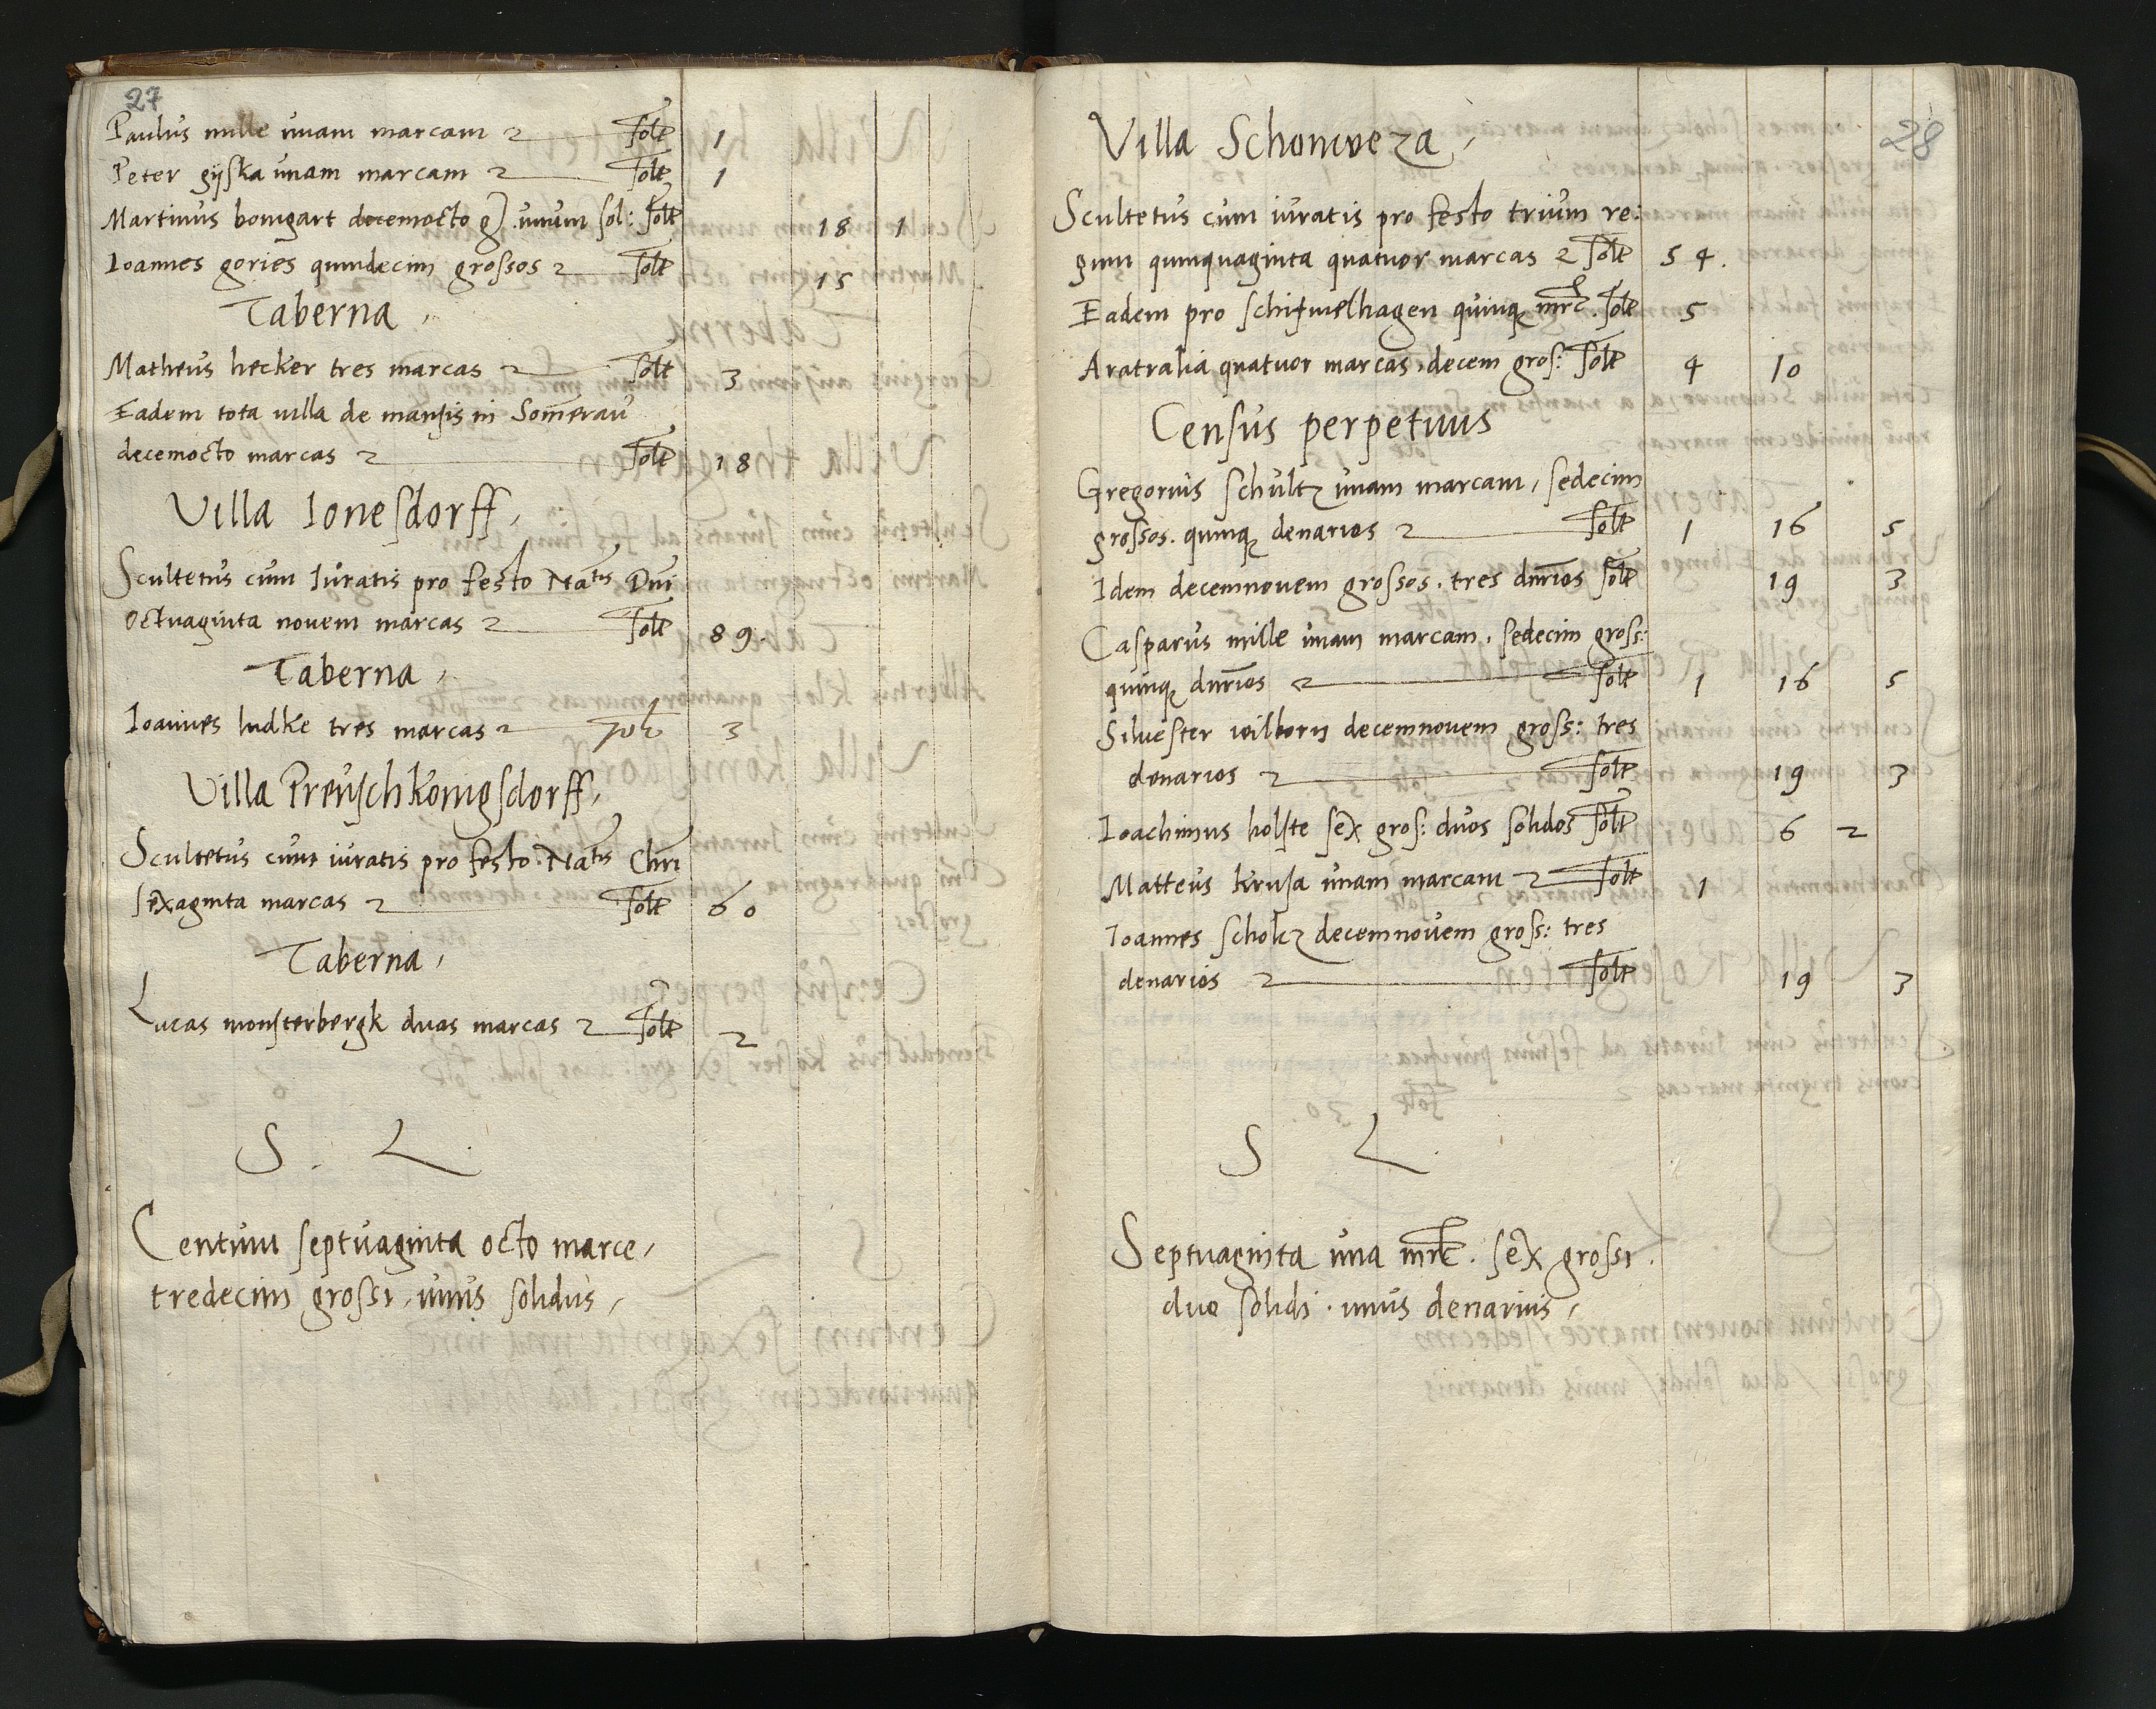 27
Paulus mille unam marcam solt 1
Peter gijska unam marcam solt 1
Martinus bomgart decemocto g unum sol: solt 18 1
Ioannes gories quindecim grossos solt 15
Taberna
Matheus hecker tres marcas solt 3
Eadem tota villa de mansis in Somerau
decemocto marcas solt 18
Villa Ionesdorff
Scultetus cum Iuratis pro festo Natis Dni
octuaginta novem marcas solt 89.
Taberna
Ioannes ludke tres marcas solt 3
Villa Preuschkonigsdorff
Scultetus cum iuratis pro festo Natis Chri
sexaginta marcas solt 60
Taberna
Lucas monsterbergk duas marcas solt 2
S. L.
Centum septuaginta octo marce,
tredecim grossi, unus solidus,
28
Villa Schonweza
Scultetus cum iuratis pro festo trium re:
gum quinquaginta quatuor marcas solt 54.
Eadem pro quinq mrc. solt 5
Aratralia quatuor marcas, decem gros: solt 4 10
Census perpetuus
Gregorius schultz unam marcam, sedecim
grossos. quinq denarios solt 1 16 5
Idem decemnovem grossos. tres dnrios solt 19 3
Casparus mille unam marcam. sedecim gross:
quinq dnrios solt 1 16 5
Silvester wilborn decemnovem gross: tres
denarios solt 19 3
Ioachimus holste sex gros: duos solidos solt 6 2
Matteus krusa unam marcam solt 1
Ioannes scholcz decemnovem gross: tres
denarios solt 19 3
S L.
Septuaginta una mrc. sex grossi.
duo solidi. unus denarius,